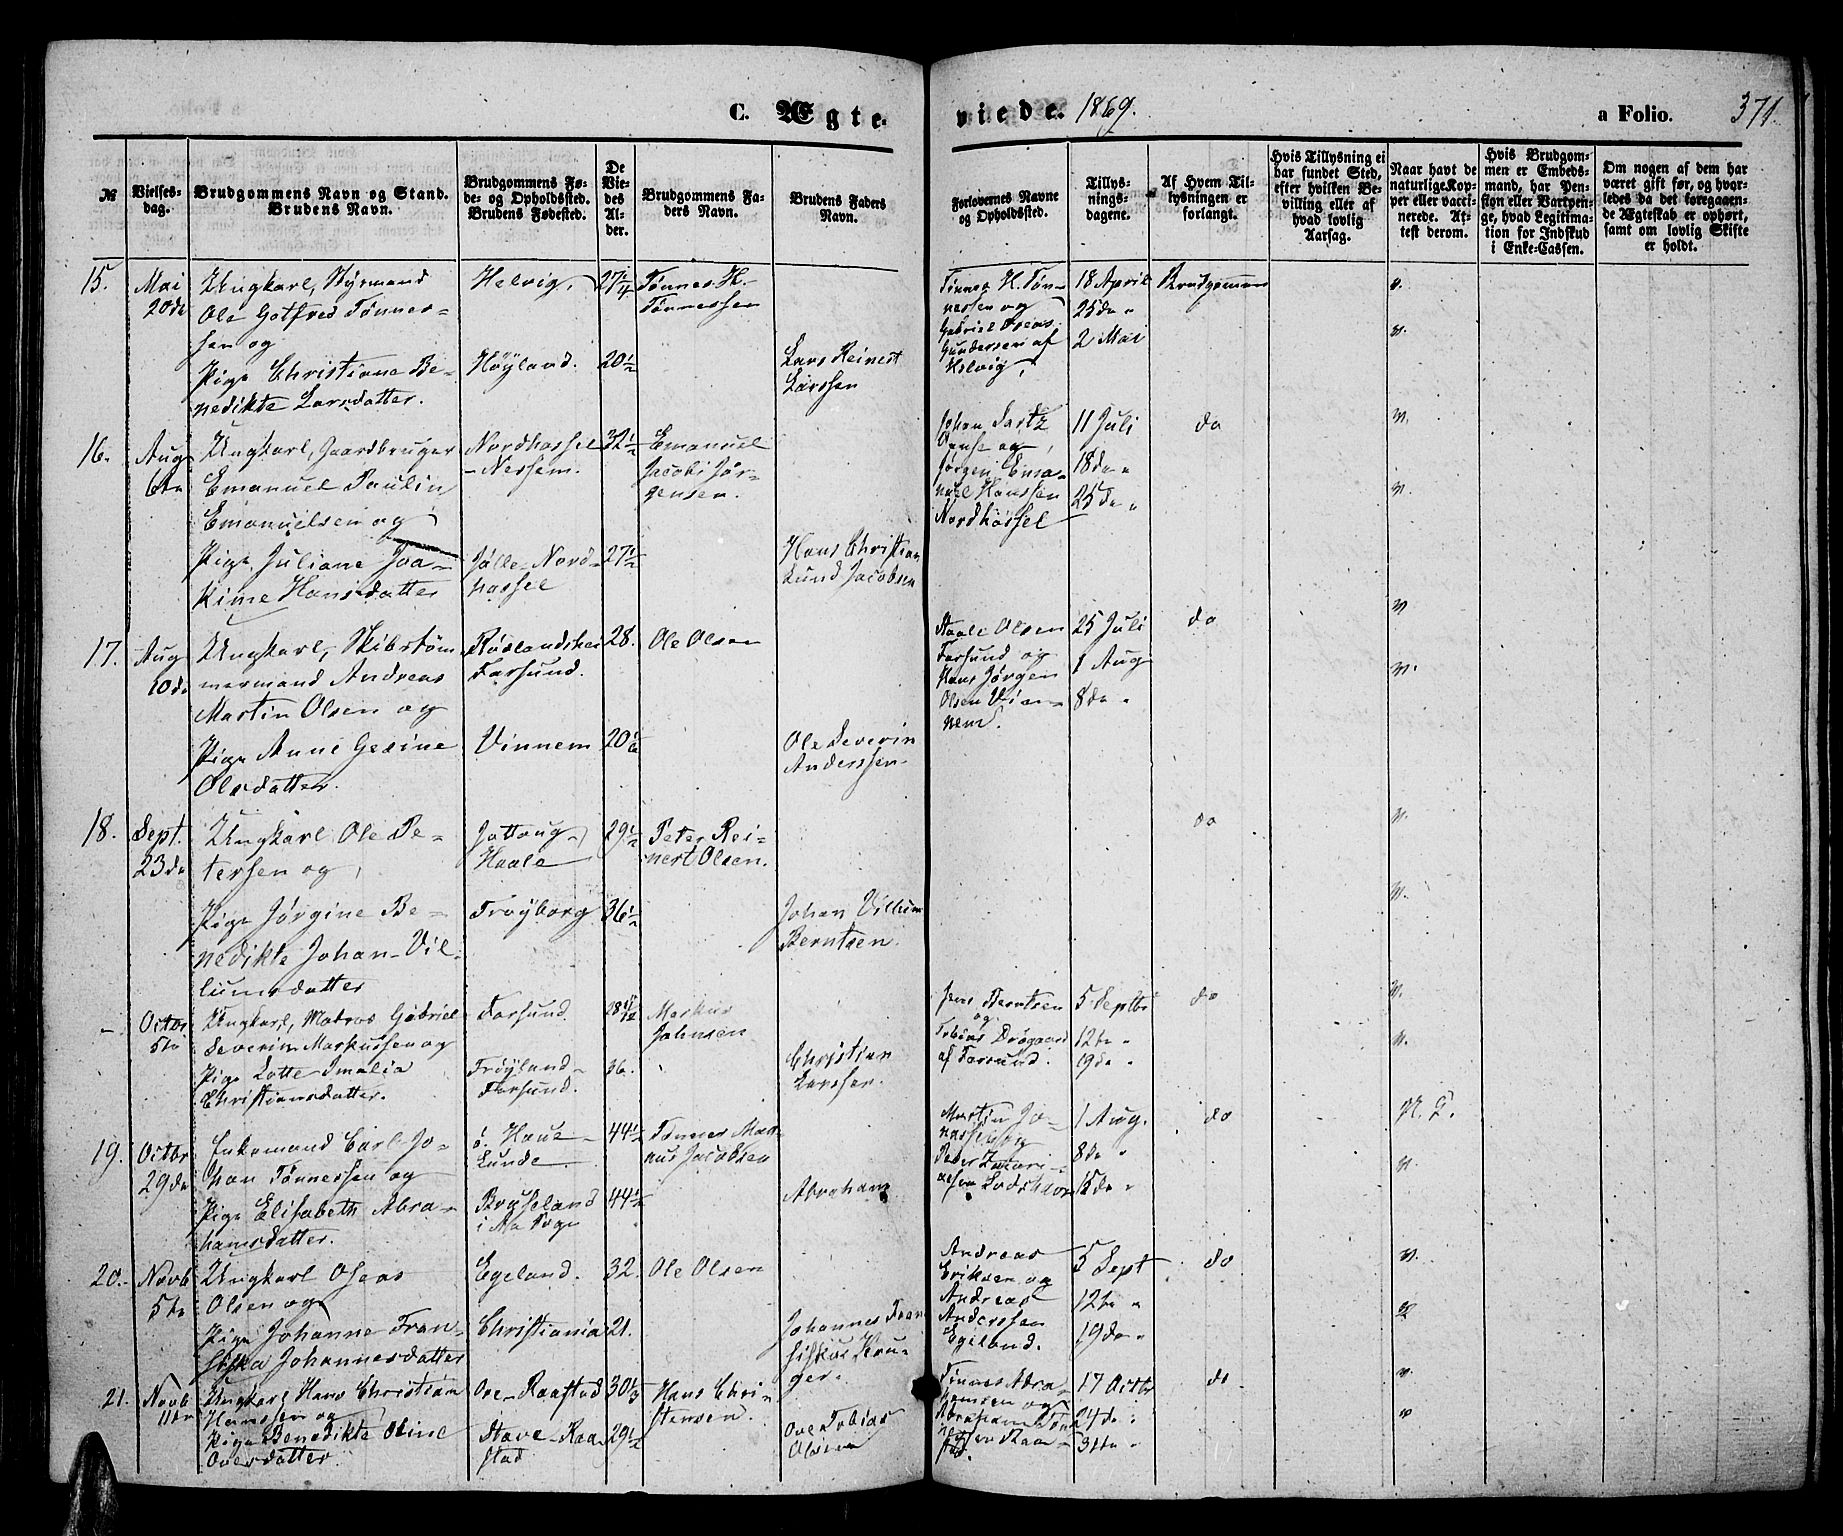 C. Ægte-
viede. 1869.
a Folio. 371.
№
Vielses-
dag.
Brudgommens Navn og Stand.
Brudens Navn.
Brudgommens Fø-
de- og Opholdssted.
Brudens Fødested.
De
Vie-
des
Al-
der.
Brudgommens Fa-
ders Navn.
Brudens Faders
Navn.
Forlovernes Navne
og Opholdssted.
Tillys-
nings-
dagene.
Af Hvem Til-
lysningen er
forlangt.
Hvis Tillysning ei
har fundet Sted,
efter hvilken Be-
villing eller af
hvad lovlig
Aarsag.
Naar havt de
naturlige Kop-
per eller vacci-
nerede. At-
test derom.
Hvis Brudgom-
men er Embeds-
mand, har Pen-
sion eller Vartpen-
ge, hvad Legitima-
tion for Indskud
i Enke-Cassen.
Om nogen af dem har
været gift før, og hvor-
ledes da det foregaaen-
de Ægteskab er ophørt,
samt om lovlig Skifte
er holdt.
15. Mai
20de
Ungkarl, Styrmand
Ole Gotfred Tønnes-
sen og
Pige Christiane Be-
nedikte Larsdatter.
Helvig.
Høyland.
27 1/4
20 1/2
Tønnes H.
Tønnessen
Lars Reinert
Larssen
Tønnes H. Tøn-
nessen og
Gabriel Oseas
Gundersen af
Helvig.
18 April
25de "
2 Mai
Brudgommen
v.
v.
16. Aug
6te
Ungkarl, Gaardbruger
Emanuel Paulin
Emanuelsen og
Pige Juliane Joa-
kime Hansdatter
Nordhassel
- Nessem.
Jølle-Nord-
hassel
32 1/2
27 1/2
Emanuel
Jacobi Jør-
gensen.
Hans Christian
Lund Jacobsen
Johan
og
Jørgen Ema-
nuel Hanssen
Nordhassel
11 Juli
18de "
25de "
do
v.
v.
17. Aug
10de
Ungkarl, Skibstøm-
mermand Andreas
Martin Olsen og
Pige Anne Gesine
Olsdatter.
Rødlandshei
Farsund.
Vinnem
28.
20 1/6
Ole Olsen
Ole Severin
Anderssen.
Staale Olsen
Farsund og
Hans Jørgen
Olsen Vin-
nem.
25 Juli
1 Aug
8de "
do
v.
v.
18. Sept.
23de
Ungkarl Ole Pe-
tersen og
Pige Jørgine Be-
nedikte Johan-Vil-
lumsdatter
Jøttaug-
Haale
Frøyborg
29 1/2
36 1/2
Peter Rei-
nert Olsen.
Johan Villum
Berntsen.
do
v.
v.
- Octbr
5te
Ungkarl, Matros Gabriel
Severin Markussen og
Pige Lotte Amalia
Christiansdatter.
Farsund.
Frøyland-
Farsund.
36.
Markus
Johnsen
Christian
Larssen.
Jens Berntsen
og
Tobias
af Farsund.
5 Septbr
12te "
19de "
do
v.
v.
19. Octbr
29de
Enkemand Carl Jo-
han Tønnessen og
Pige Elisabeth Abra-
hamsdatter.
ø. Haue-
Lunde
Bruseland
i Aa Sogn
44 1/2
44 1/2
Tønnes Mag-
nus Jacobsen
Abraham
Martin Jo-
nassen og
Peder Zakari-
assen
1 Aug.
8de "
15de "
do
N. G.
v.
20. Novb
5te
Ungkarl Oseas
Olsen og
Pige Johanne Fran-
siska Johannesdatter
Egeland.
Christiania
32.
21.
Ole Olsen
Johannes Fran-
siskus Kru-
ger.
Andreas
Eriksen og
Andreas
Anderssen
Egeland.
5 Sept
12te "
19de "
do
v.
v.
21. Novb
11te
Ungkarl Hans Christian
Hanssen og
Pige Benedikte Oline
Ovesdatter.
Ore-Raastad
Stave-Raa-
stad
30 1/3
29 1/2
Hans Chri-
stensen.
Ove Tobias
Olsen
Tønnes Abra-
hamsen og
Abraham Tøn-
nessen Raa-
stad.
17 Octbr
24de "
31te "
do
v.
v.